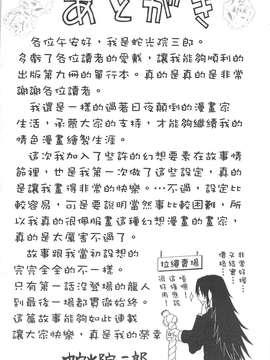 あとがき
各位午安好，我是蛇光院三郎。
多虧了各位讀者的愛戴，讓我能夠順利的
出版第九冊的單行本。真的是真的是非常
謝謝各位讀者。
我還是一樣的過著日夜顛倒的漫畫家
生活，承蒙大家的支持，才能夠繼續我的
情色漫畫繪製生涯。
這次我加入了些許的幻想要素在故事情
節裡，也是我第一次做了這些設定，真的
是讓我畫得非常的快樂。…不過，設定比
較容易，可是要說明當然事比較困難，所
以我真的很佩服畫這種幻想漫畫的畫家，
真的是太厲害不過了。
故事跟我當初設想的
完完全全的不一樣。
只有第一話沒登場的龍人
到最後一場都貫徹始終。
這篇故事能夠如此連載
讓大家快樂，真是我的榮幸
蛇光院三郎
拉繩賣場